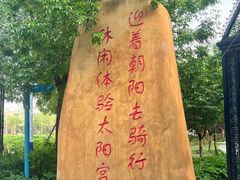 迎着朝阳去骑行
休闲体验太阳宫